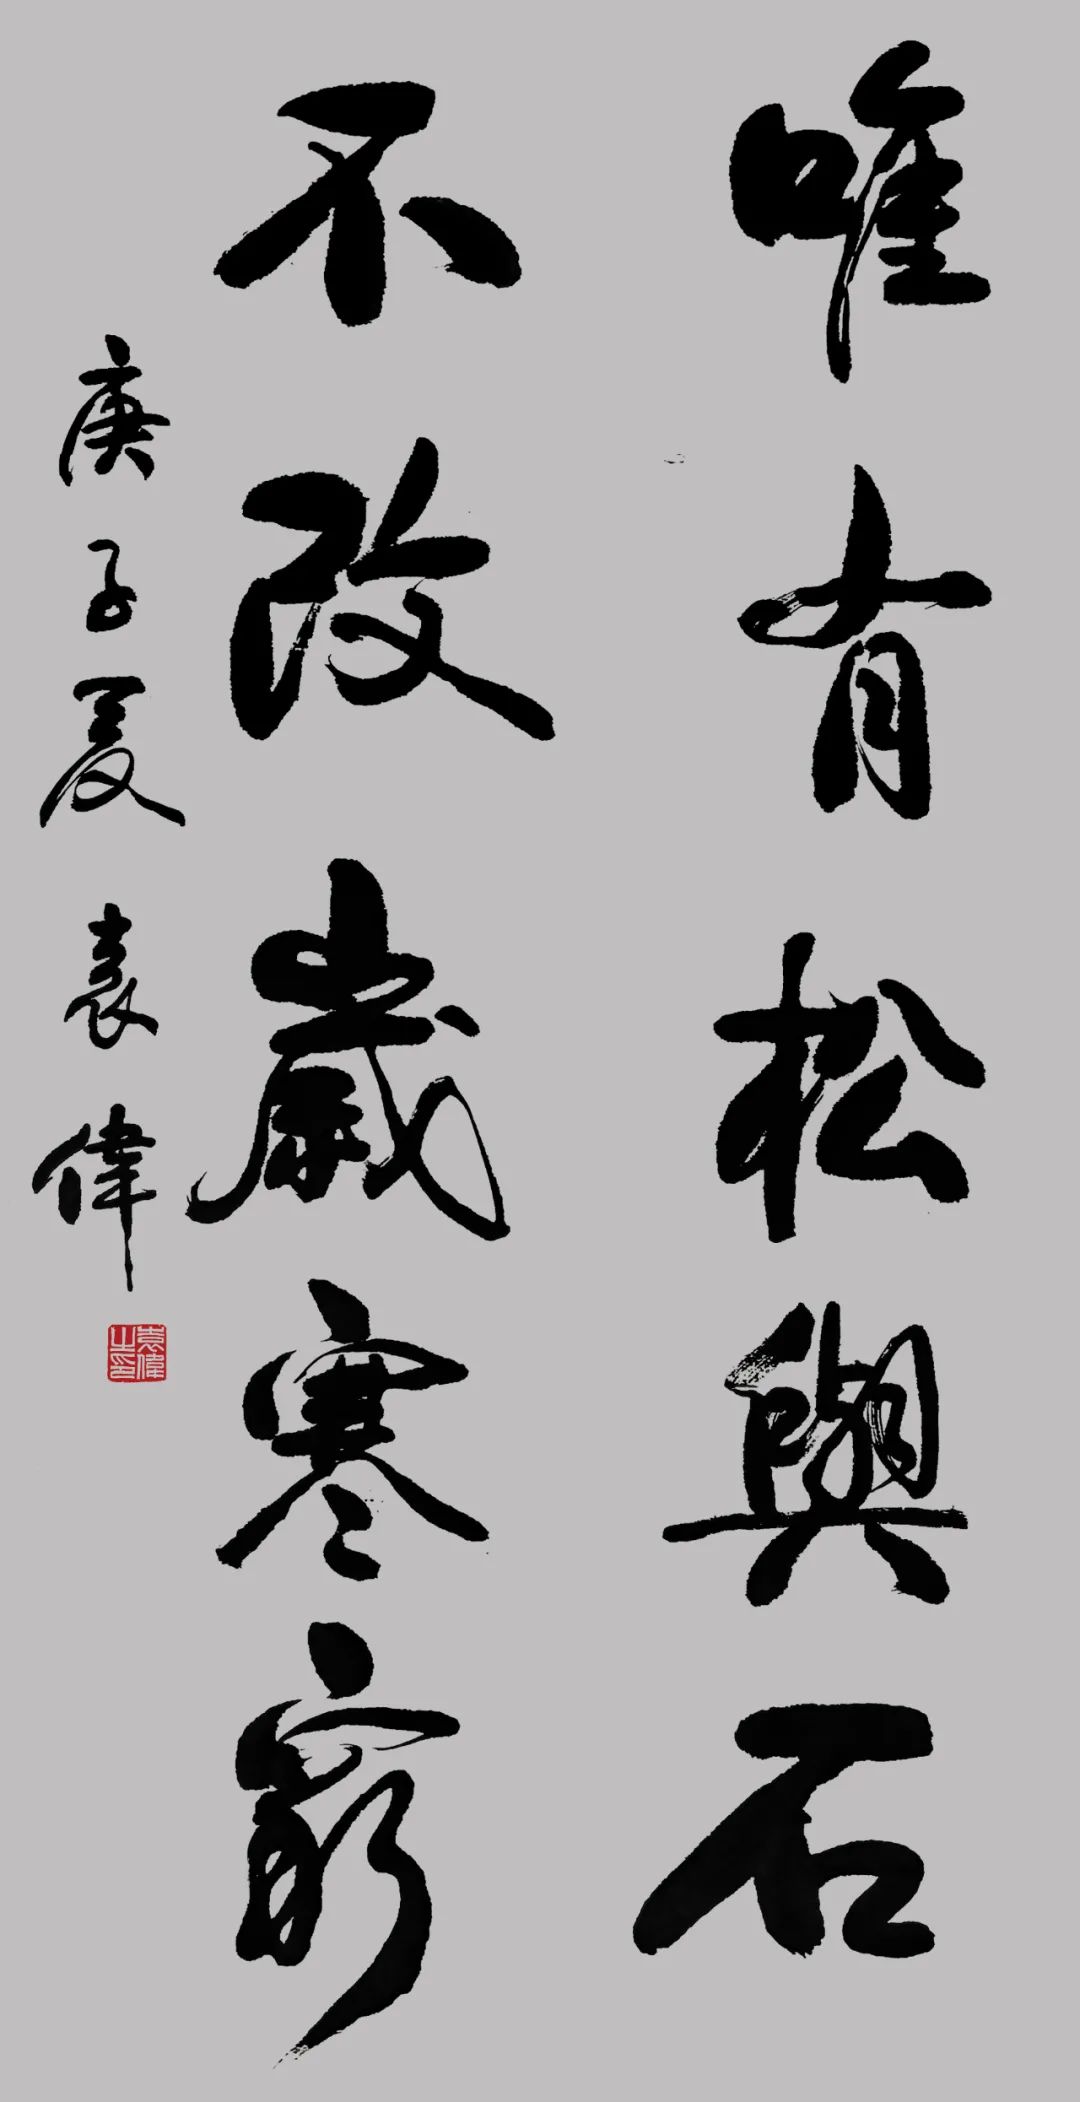 唯有松與石
不改歲寒窮
庚子夏 袁偉
袁偉之印